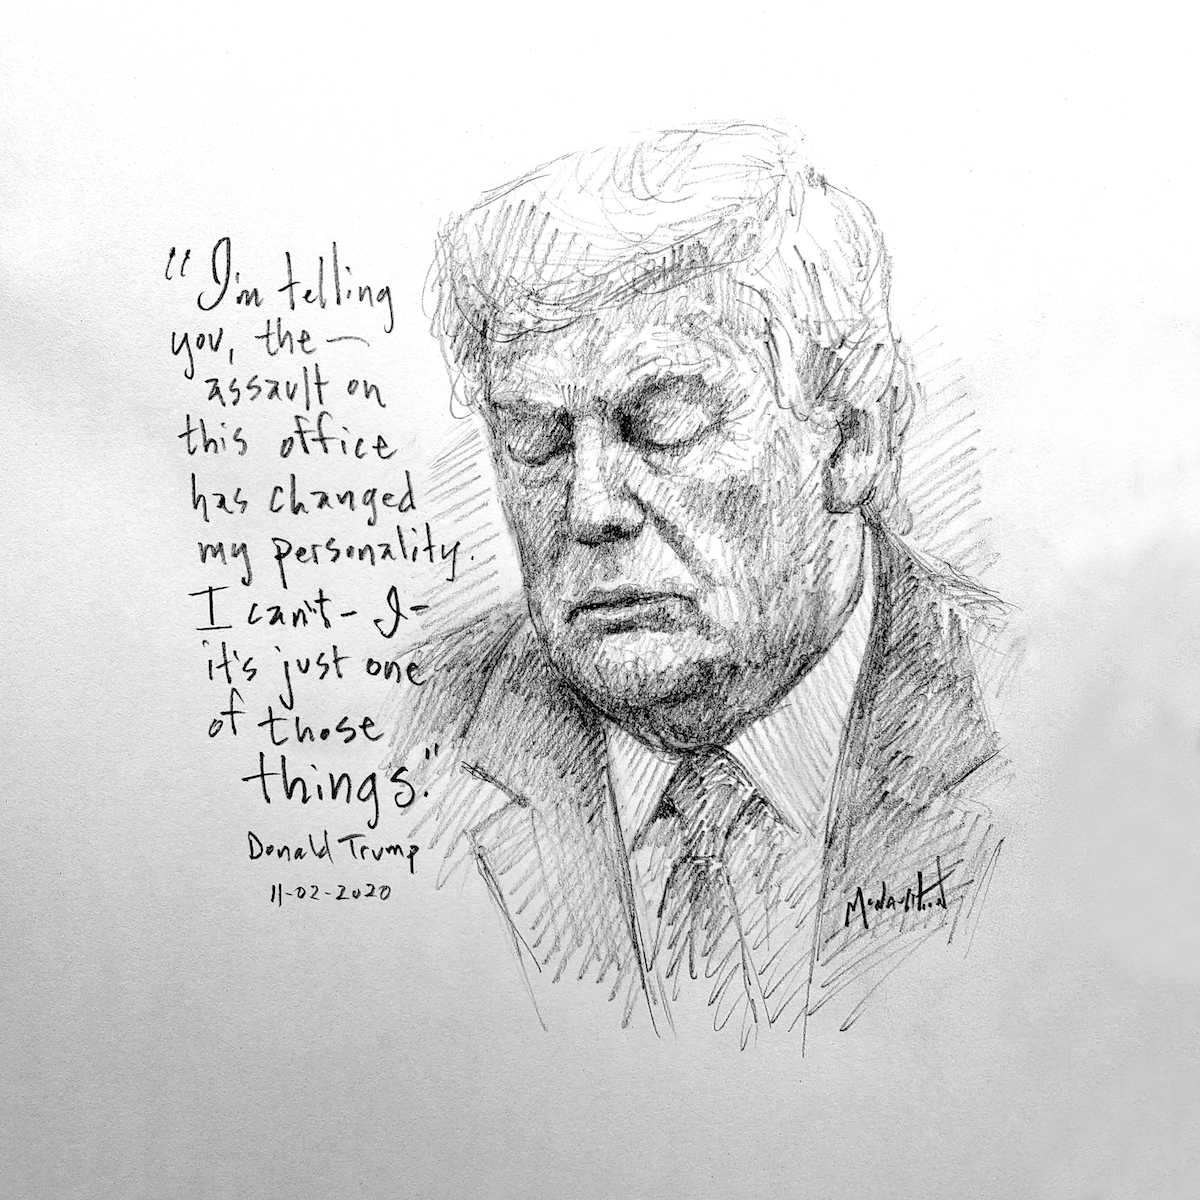 "I'm telling
you, the—
assault on
this office
has changed
my personality.
I can't- I-
it's just one
of those
things."
Donald Trump
11-02-2020
McNaughton